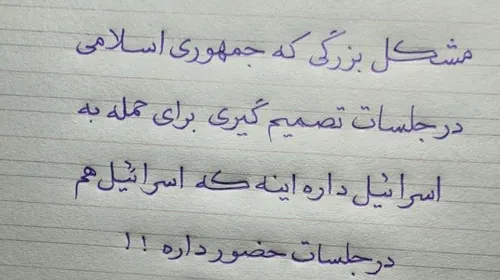 مشکل بزرگی که جمهوری اسلامی
در جلسات تصمیم گیری برای حمله به
اسرائیل داره اینه که اسرائیل هم
در جلسات حضور داره !!